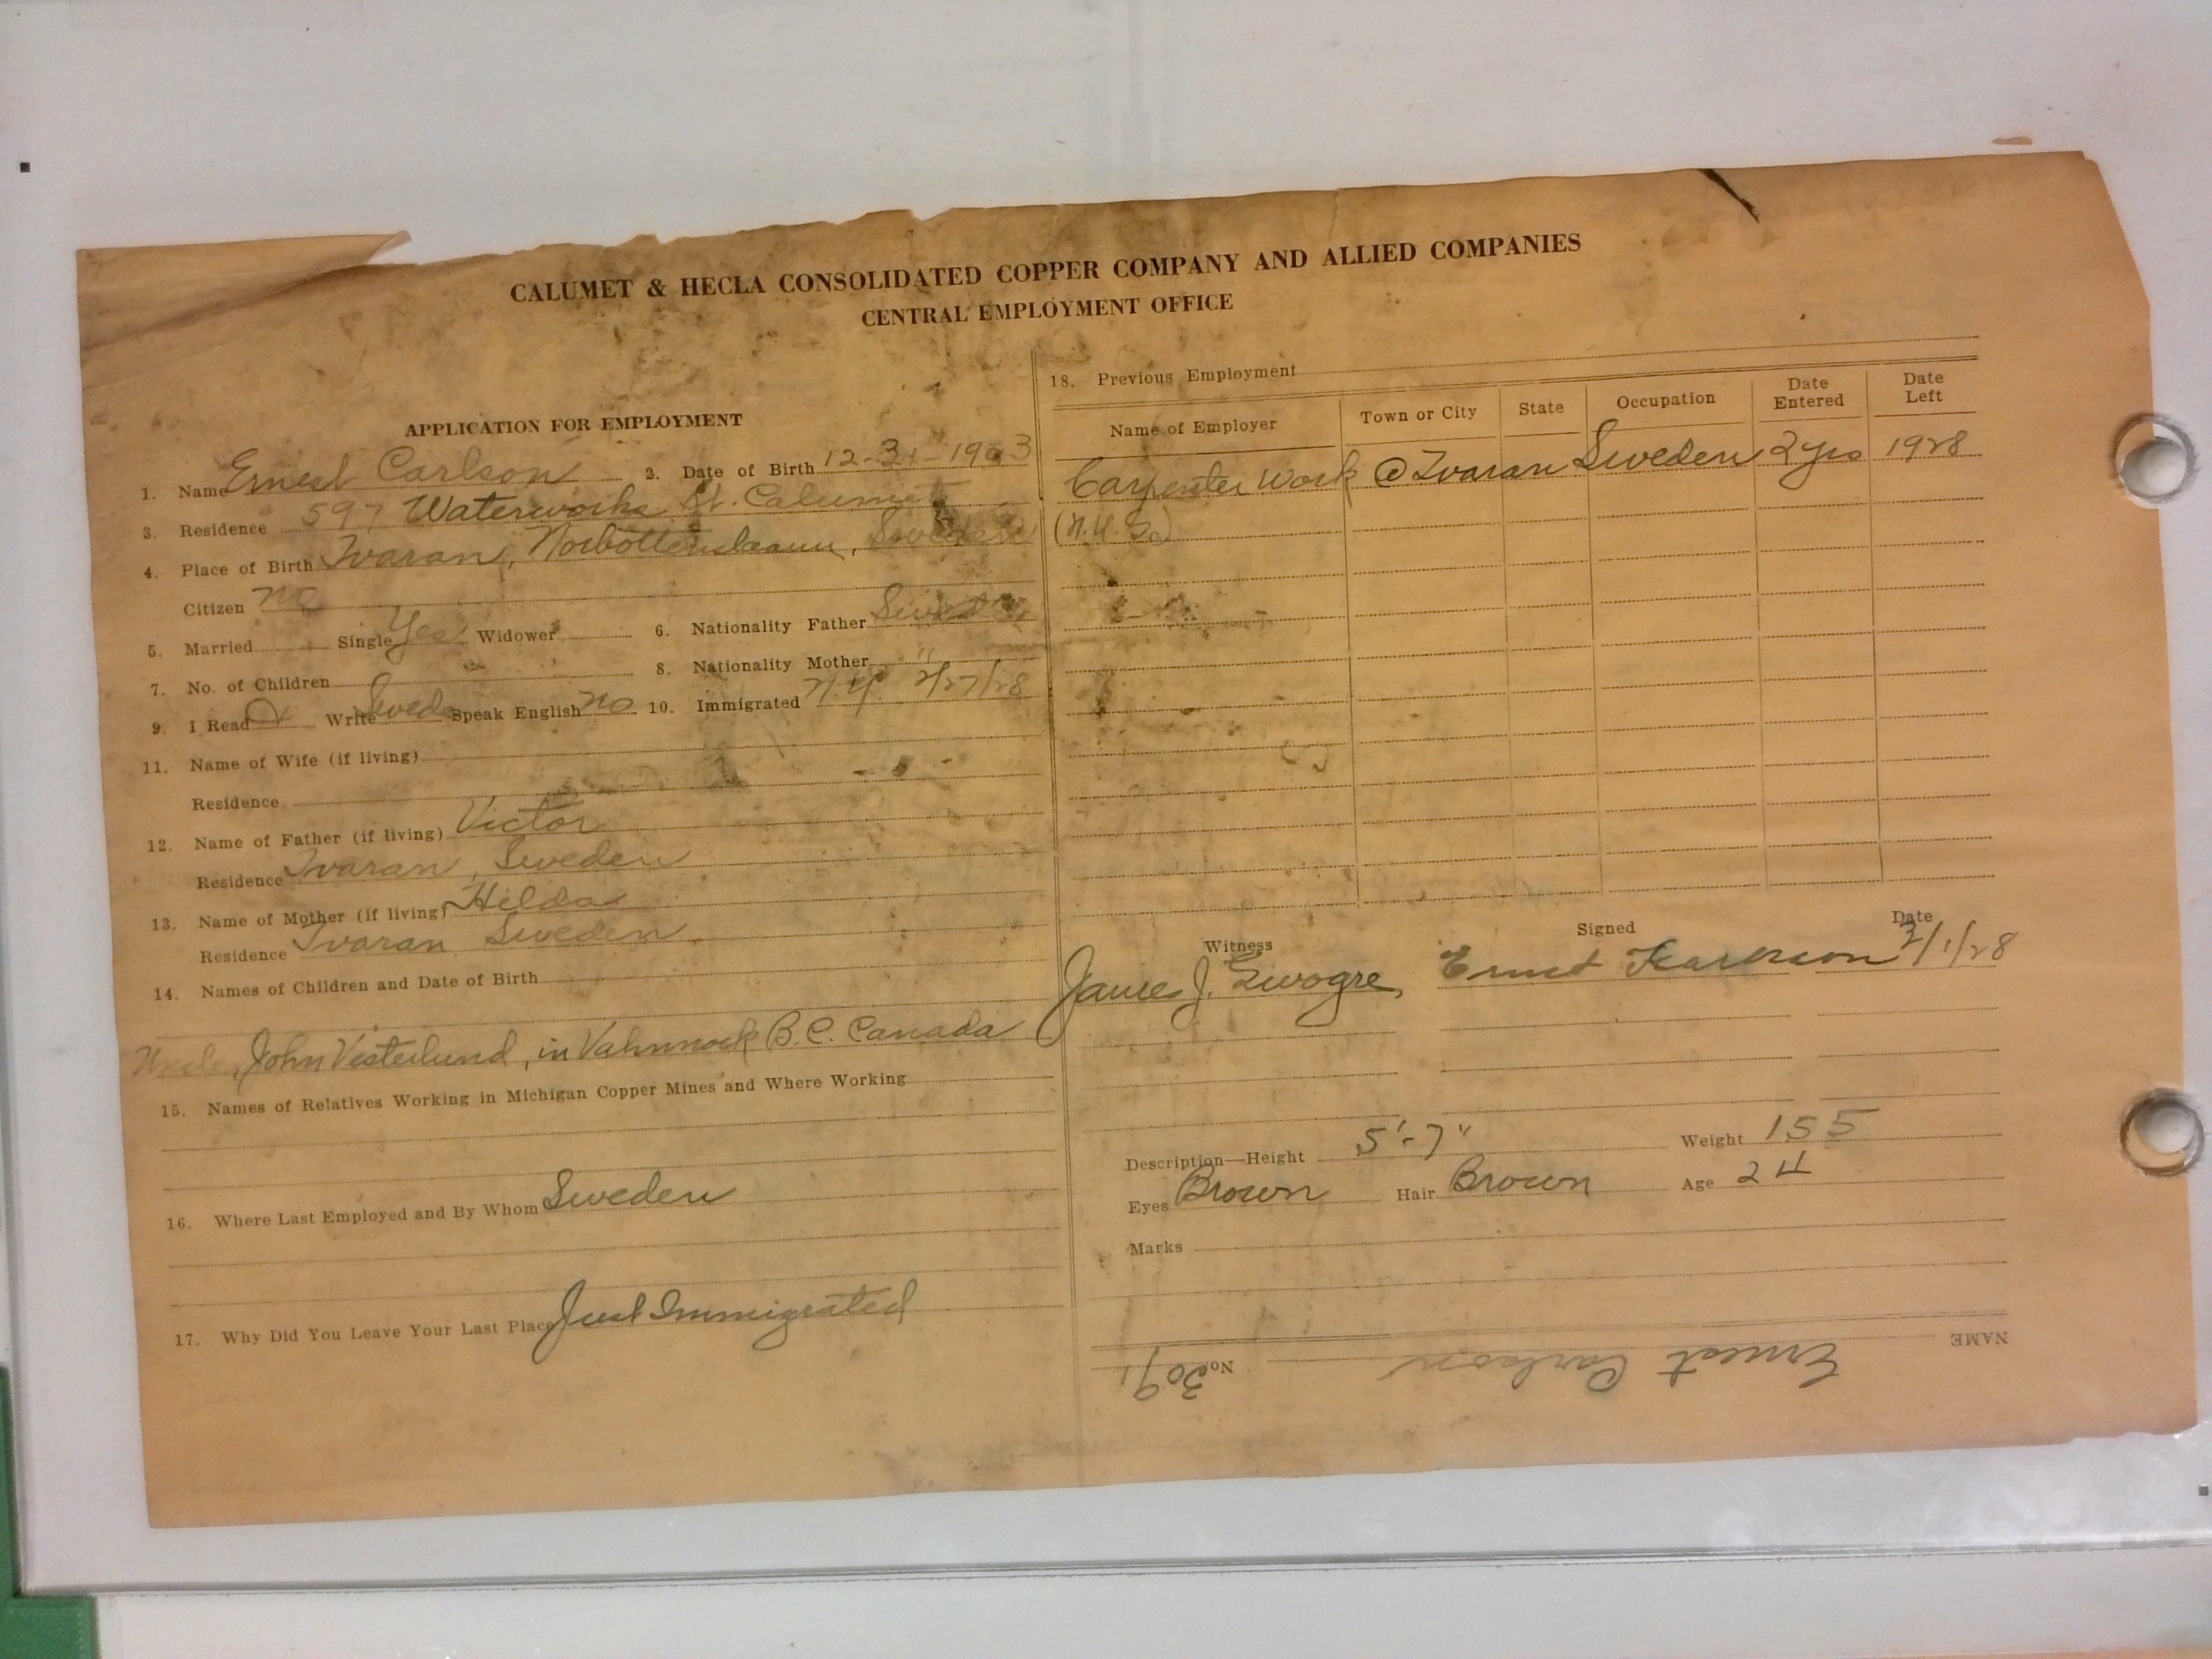 CALUMET & HECLA CONSOLIDATED COPPER COMPANY AND ALLIED COMPANIES
CENTRAL EMPLOYMENT OFFICE
APPLICATION FOR EMPLOYMENT
1. Name Ernest Carlson 2. Date of Birth 12-31-1903
3. Residence 597 Waterworks St. Calumet
4. Place of Birth Ivaran, Sweden
Citizen no
5. Married Single Yes Widower 6. Nationality Father Sweden
7. No. of Children 8. Nationality Mother "
9. I Read & Write Swede Speak English no 10. Immigrated N.Y. 2/27/28
11. Name of Wife (if living)
Residence
12. Name of Father (if living) Victor
Residence Ivaran, Sweden
13. Name of Mother (if living) Hilda
Residence Ivaran Sweden
14. Names of Children and Date of Birth
Uncle, John Vesterlund, in B.C. Canada
15. Names of Relatives Working in Michigan Copper Mines and Where Working
16. Where Last Employed and By Whom Sweden
17. Why Did You Leave Your Last Place Just Immigrated
18. Previous Employment
Name of Employer Town or City State Occupation Date Entered Date Left
Carpenter Work @ Ivaran Sweden 2 yrs 1928
Witness Signed Date
James J. Ernst /1/28
Description—Height 5'-7" Weight 155
Eyes Brown Hair Brown Age 24
Marks
NAME Ernest Carlson No. 3091